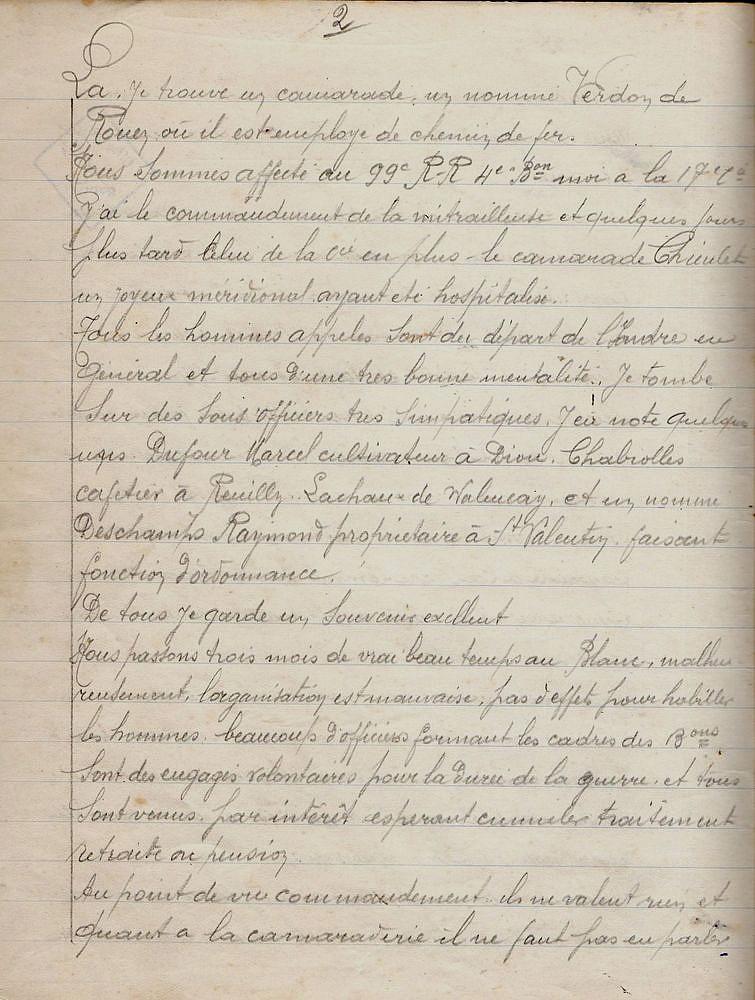 2
La. Je trouve un camarade, un nommé Verdon de
Rouen où il est employe de chemin de fer.
Nous sommes affecté au 99e R-R 4e Bon moi a la 17e Cie
J'ai le commandement de la mitrailleuse et quelques jours
plus tard celui de la Cie en plus - le camarade
un joyeux méridional ayant eté hospitalisé.
Tous les hommes appeles sont du départ de l'Indre en
Général et tous d'une tres bonne mentalité. Je tombe
sur des sous officiers tres simpatiques. J'en note quelques
uns. Dufour Marcel cultivateur à Diou. Chabrolles
cafetier à Reuilly. Lachaux de Valencay, et un nomme
Deschamps Raymond propriétaire à St Valentin faisant
fonction d'ordonnance.
De tous je garde un souvenir excellent
Nous passons trois mois de vrai beau temps au Blanc, malheu
reusement, l'organisation est mauvaise, pas d'effets pour habiller
les hommes. beaucoup d'officiers formant les cadres des Bons
sont des engagés volontaires pour la durée de la guerre. et tous
sont venus par intérêt esperant cumuler traitement
retraite ou pension.
Au point de vue commandement ils ne valent rien et
quant a la camaraderie il ne faut pas en parler